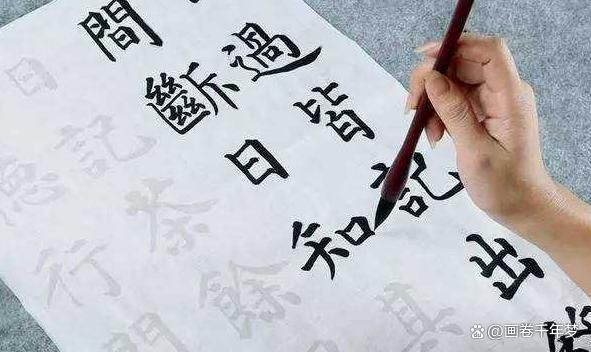 過皆記出
間斷日知其
日記茶餘
德行門
@画卷千年梦